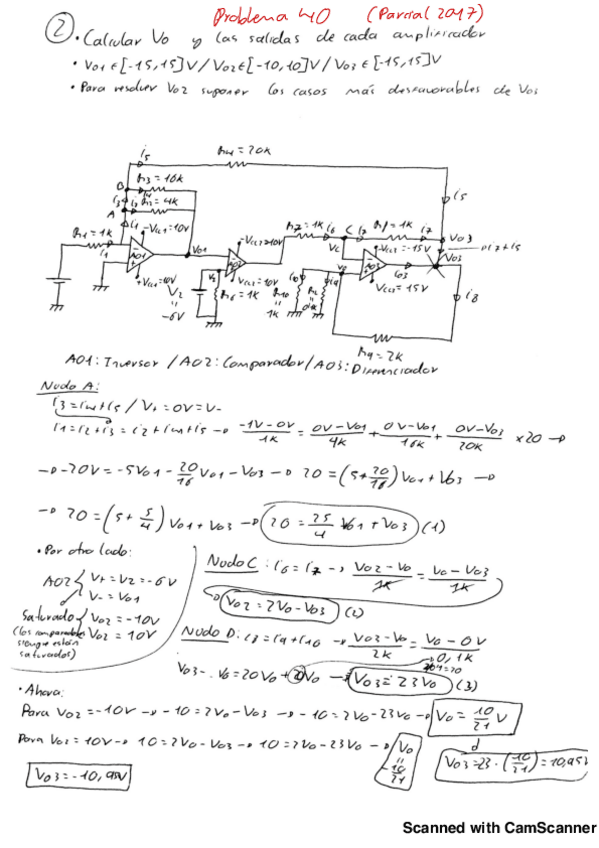 Problema 40 (Parcial 2017)
② • Calcular Vo y las salidas de cada amplificador
• Vo1 ∈ [-15,15]V / Vo2 ∈ [-10,10]V / Vo3 ∈ [-15,15]V
• Para resolver Vo2 suponer los casos más desfavorables de Vo3
i5
R4 = 20K
R3 = 16K
B
i3
R2 = 4K
A
R1 = 1K
i1
-Vcc1 = 10V
AO1
+Vcc1 = 10V
Vo1
V2
=
-6V
-Vcc2 = 10V
Vcc2 = 10V
R6 = 1K
R7 = 1K
i6
C
i7
R8 = 1K
i7
i5
Vo3
i7+i5
Vcc2 = -15V
AO3
Vcc3 = 15V
io3
Vo3
i8
R10
=
1K
R9 = 2K
AO1: Inversor / AO2: Comparador / AO3: Diferenciador
Nodo A:
i3 = i4 + i5 / V+ = 0V = V-
i1 = i2 + i3 = i2 + i4 + i5 → -1V-0V/1K = 0V-Vo1/4K + 0V-Vo1/16K + 0V-Vo3/20K x20 →
→ -20V = -5Vo1 - 20/16 Vo1 - Vo3 → 20 = (5 + 20/16) Vo1 + Vo3 →
→ 20 = (5 + 5/4) Vo1 + Vo3 → 20 = 25/4 Vo1 + Vo3 (1)
• Por otro lado:
AO2 { V+ = V2 = -6V
V- = Vo1
Saturado { Vo2 = -10V
Vo2 = 10V
(los comparadores siempre están
saturados)
Nodo C: i6 = i7 → Vo2-Vo/1K = Vo-Vo3/1K
→ Vo2 = 2Vo - Vo3 (2)
Nodo D: i8 = i9 + i10 → Vo3-Vo/2K = Vo-0V/0,1K
Vo3 - Vo = 20Vo + 20Vo → Vo3 = 23Vo (3)
• Ahora:
Para Vo2 = -10V → -10 = 2Vo - Vo3 → -10 = 2Vo - 23Vo → Vo = 10/21 V
Para Vo2 = 10V → 10 = 2Vo - Vo3 → 10 = 2Vo - 23Vo → Vo = -10/21
Vo3 = 23 · (10/21) = 10,953
Vo3 = -10,95V
Scanned with CamScanner